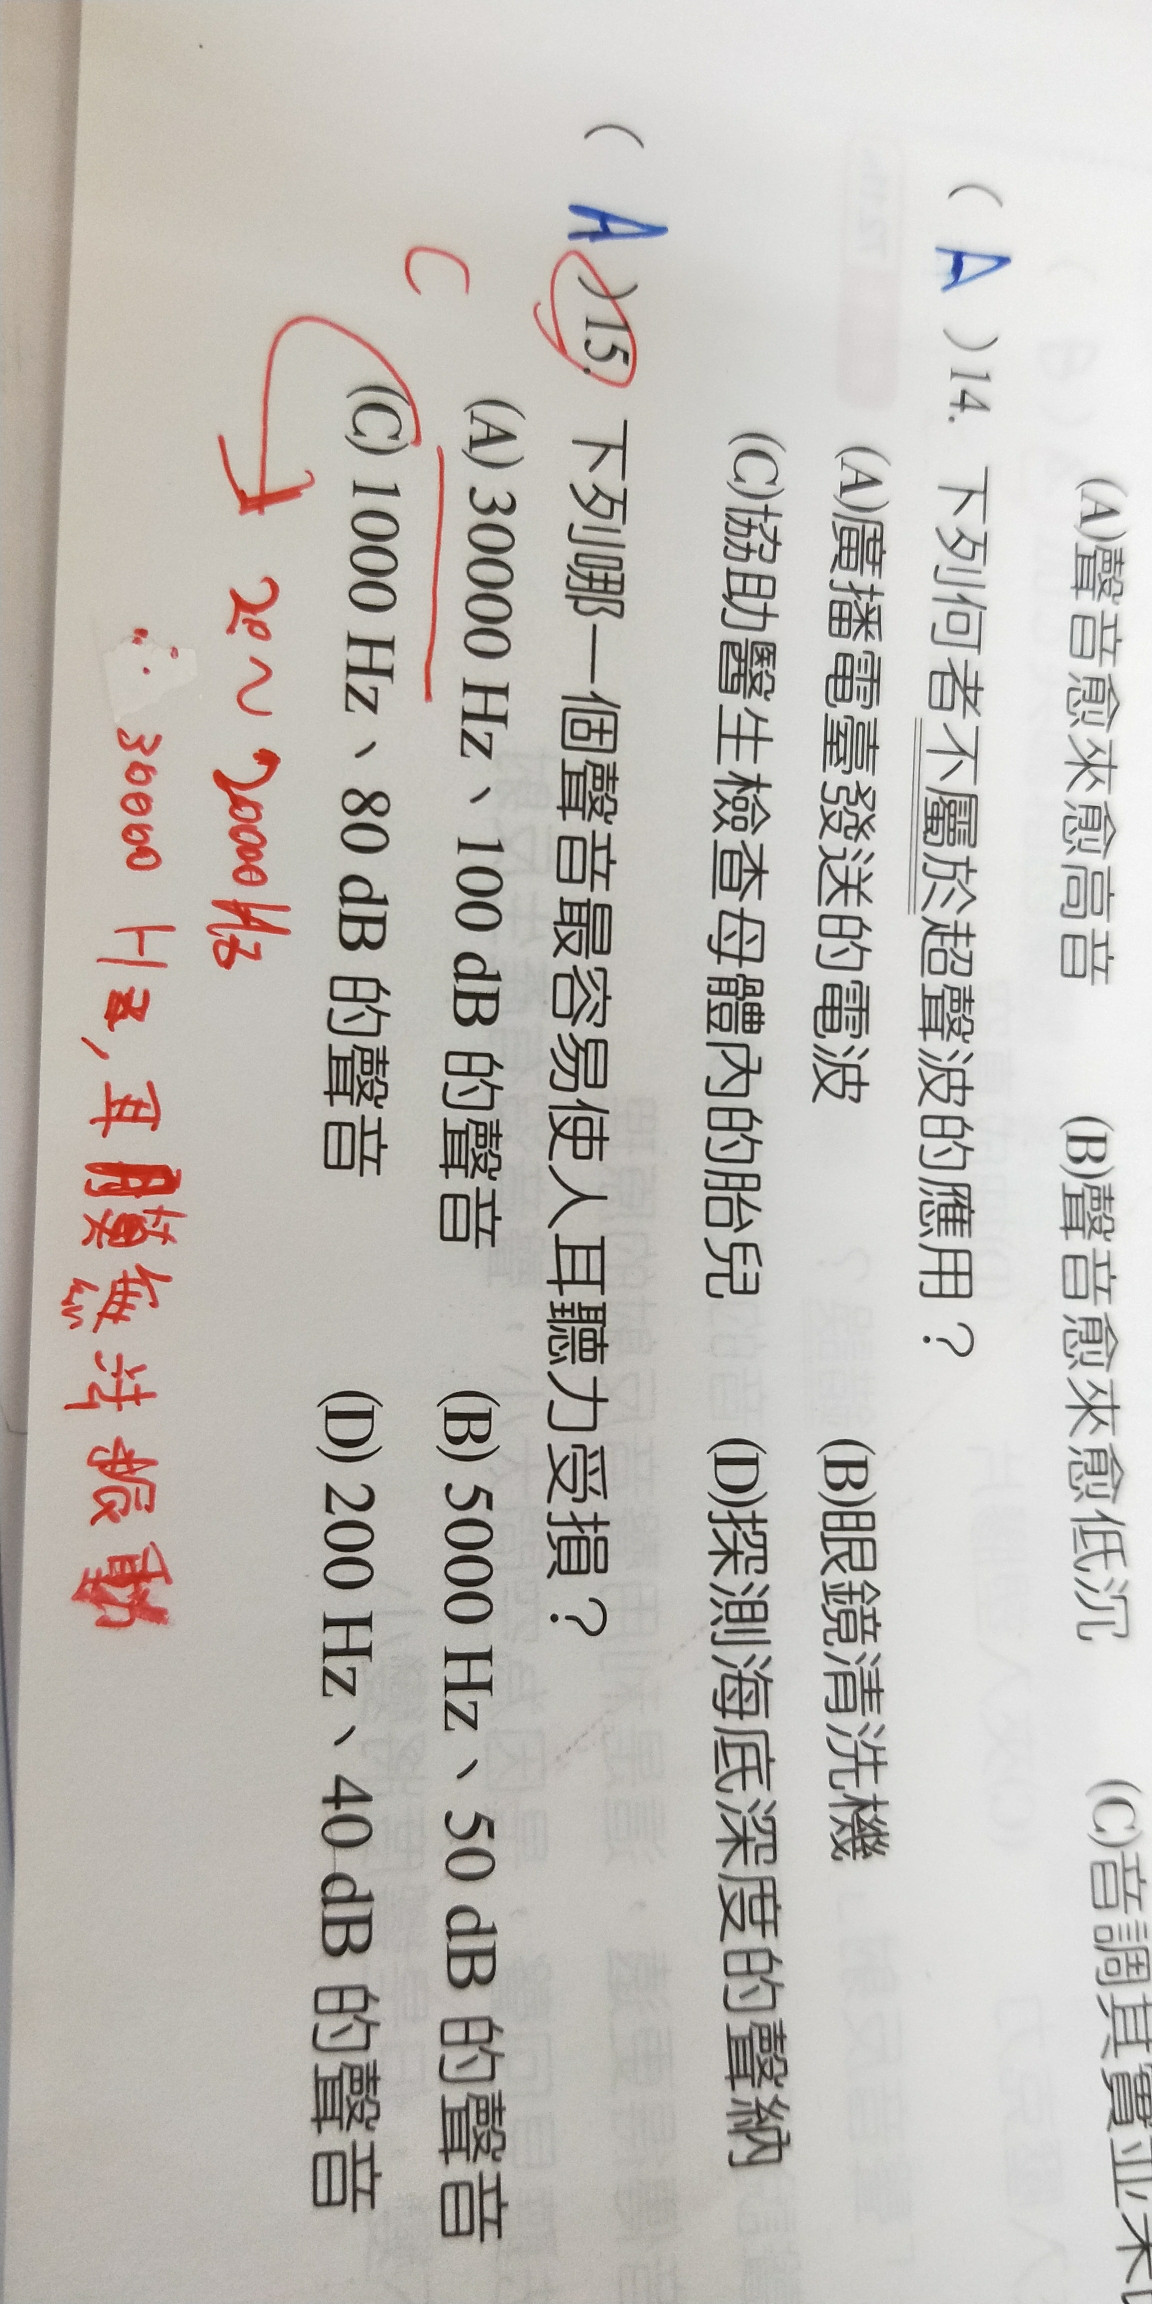 (A)聲音愈來愈高音 (B)聲音愈來愈低沉 (C)音調其實並未
( A )14. 下列何者不屬於超聲波的應用？
(A)廣播電臺發送的電波 (B)眼鏡清洗機
(C)協助醫生檢查母體內的胎兒 (D)探測海底深度的聲納
( A )15. 下列哪一個聲音最容易使人耳聽力受損？
C
(A) 30000 Hz、100 dB 的聲音 (B) 5000 Hz、50 dB 的聲音
(C) 1000 Hz、80 dB 的聲音 (D) 200 Hz、40 dB 的聲音
20～20000Hz
∴ 30000 Hz，耳膜無共振動